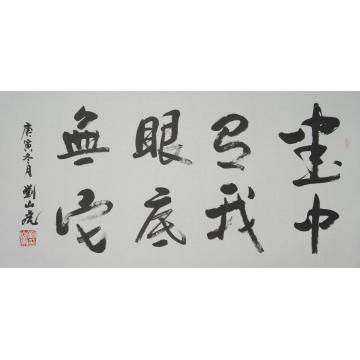 畫中
有我
眼底
無它
庚寅冬月 劉山虎